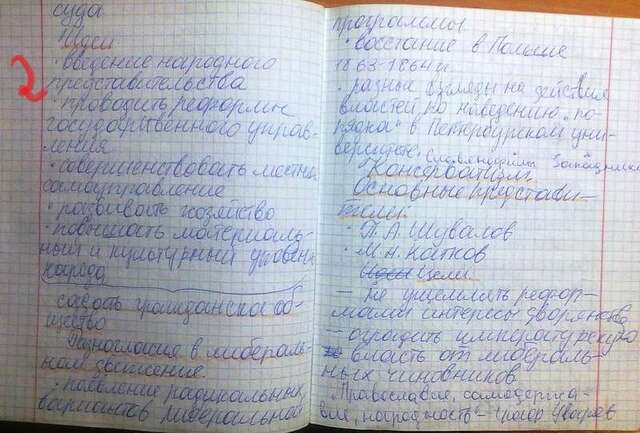 суда
Идеи
• введение народного
2
представительства
• проводить реформы
государственного управ-
ления
• совершенствовать местн.
самоуправление
• развивать хозяйство
• повысить материаль-
ный и культурный уровень
народа
создать гражданское об-
щество
Разногласия в либераль-
ном движении
• появление радикальных
вариантов либеральной
программы
• восстание в Польше
1863-1864 гг
• разные взгляды на действия
властей по наведению "по-
рядка" в Петербурском уни-
верситете.
Славянофилы Западники
Консерватизм
Основные представи-
тели:
- П.А Шувалов
- М.Н. Катков
Цели
- Не ущемлять рефор-
мами интересы дворянства
- оградить императорскую
власть от либераль-
ных чиновников
"Православие, самодержа-
вие, народность" - Уваров